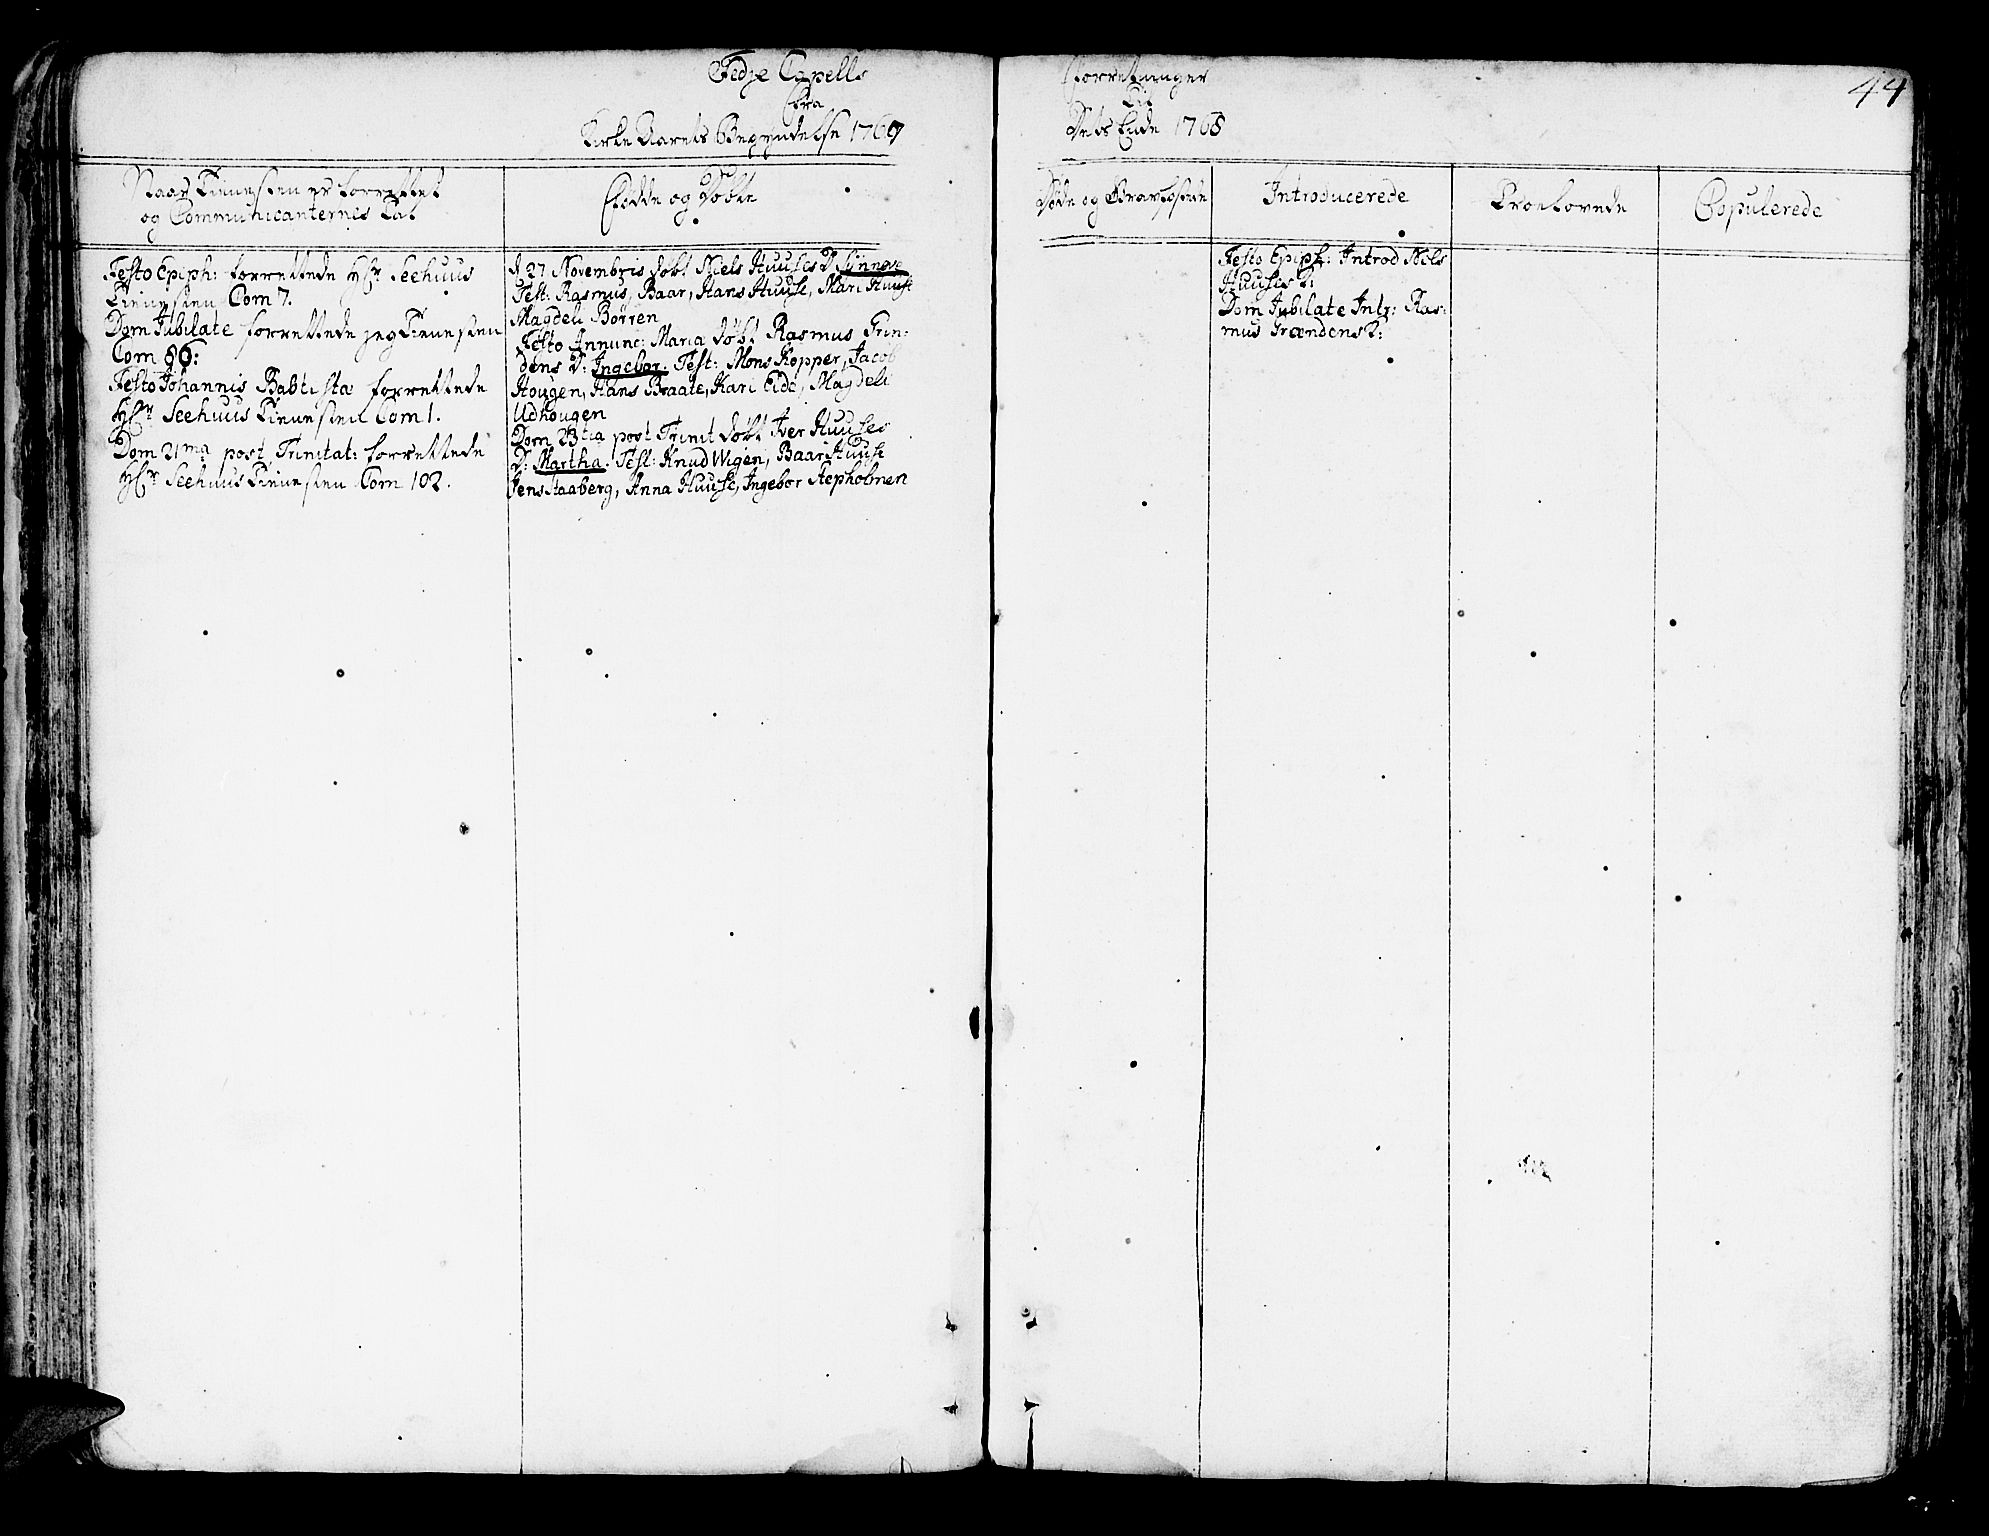 Fedje Capells
fra
Kirke Aarets Begyndelse 1767
Forretninger
til
Dets Ende 1768
44
Naar Tienesten er forrettet
og Communicanternes Tal
Fødde og Døbte
Døde og Gravfostede
Introducerede
Troelovede
Copulerede
Festo Epiph: forrettede Hr. Seehuus
Tienesten Com 7.
Dom Jubilate forrettede jeg Tienesten
Com 86:
Festo Johannis Babtista forrettede
Hr. Seehuus Tienesten Com 1.
Dom 21ma post Trinitat: forrettede
Hr. Seehuus Tienesten Com 102.
d 27 Novembris døbt Niels Huuses D Synneve
Test: Rasmus, Baar, Hans Huuse, Mari Huuse
Magdeli Børren
Festo Annunc: Maria døbt Rasmus Træn-
dens D: Ingebor. Test: Mons Kopper, Jacob
Hougen, Hans Braate, Kari Eide, Magdeli
Udhougen
Dom 23tia post Trinit døbt Iver Huuses
D: Martha. Test: Knud Wigen, Baar Huuse
Jens Staaberg, Anna Huuse, Ingebor Stepholmen
Festo Epiph: Introd Nels
Huuses k:
Dom Jubilate Intr: Ras-
mus Trændens k: